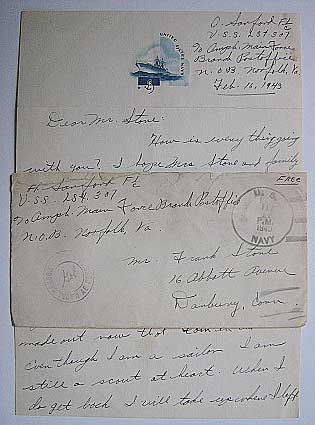 UNITED STATES NAVY
Sanford F1c
U.S.S. LST 307
c/o Amph. Main Force
Branch Postoffice
N.O.B. Norfolk, Va.
Feb. 16, 1943
Dear Mr. Stone:
How is every thing going
with you? I hope Mrs Stone and family
Sanford F1c
U.S.S. LST 307
c/o Amph. Main Force Branch Postoffice
N.O.B. Norfolk, Va.
Free
U.S.
P.M.
1943
NAVY
Mr. Frank Stone
16 Abbott Avenue
Danbury, Conn.
made out now that I am in
Even though I am a sailor I am
still a scout at heart. When I
do get back I will take up where I left